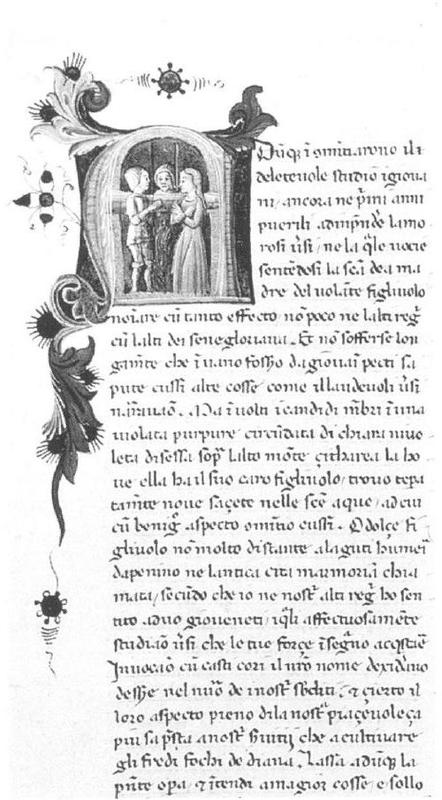 Dūq̄ ī 9mītiarono il i
deletevole studio i giova
ni ancora ne p̄mi anni
puerili ad imp̄nde lamo
rosi v̄si, ne la q̄le uocie
sentēdosi la scā dea ma
dre del uolāte figliuolo
noīare cū tanto effecto nō poco ne lalti reḡ
cū lalti dei se ne gloriaua. Et nō sofferse lon
gamīte che ī uano fosso da giouāi pecti sa
pute cussi alte cosse come i laudeuoli v̄si
nā̄rauāo. Ma ī uolti i candidi mēbri ī una
uiolata purpure circūdata di chiara nuuo
leta disessa sop̄ lalto mōte citharea la ho
ue ella ha il suo caro figliuolo, trouo tēpa
tamīte noue saçete nelle scē aque, ad cui
cū benig̊ aspecto 9mītio cussi. O dolce fi
gliuolo nō molto distante a laguti humēi
dapenino ne lantica cita marmoria chia
mata, secūdo che io ne nost̄ alti reḡ ho sen
tito a duo gioueneti, iq̄li affectuosamēte
studiāo v̄si che le tue força īsegno acq̄stāe
Inuocāo cū casti cori il nr̄o nome dexidrāo
desse nel nuō de i nost̄ sb̄diti. & cierto il
loro aspecto pieno di la nost̄ piaçeuoleça
piu sa p̄sta a nost̄ s̄uitij che a cultiuare
gli fredi fochi de diana. Lassa adūq̄ la
p̄nte opa, & ītendi a magior cosse e sollo